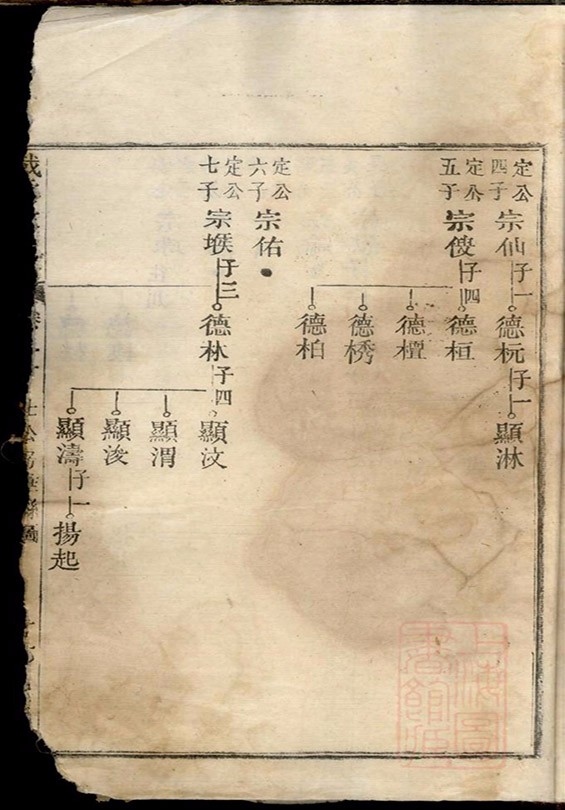 定公四子 宗仙 子一
德杬 子一
顯淋
定公五子 宗傁 子四
德桓
德檀
德桞
德柏
定公六子 宗佑
定公七子 宗堠 子三
德林 子四
顯汶
顯渭
顯浚
顯濤 子一
揚起